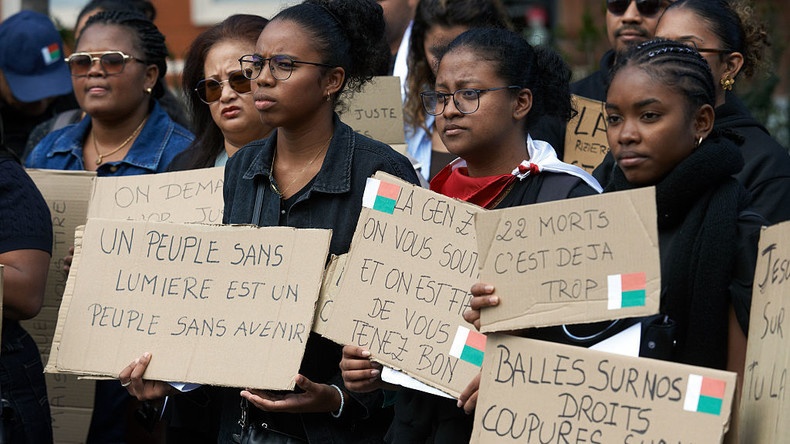 JUSTE
ON DEMA
UN PEUPLE SANS
LUMIERE EST UN
PEUPLE SANS AVENIR
LA GEN Z
ON VOUS SOUT
ET ON EST FIE
DE VOUS
TENEZ BON
22 MORTS
C'EST DEJA
TROP
BALLES SUR NOS
DROITS
COUPURES SUR
SUR
TU LA